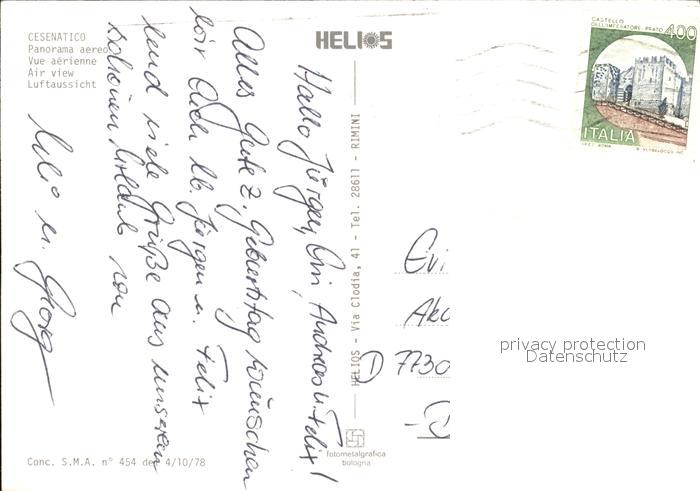 CESENATICO
Panorama aereo
Vue aérienne
Air view
Luftaussicht
HELIOS
CASTELLO
DELL'IMPERATORE PRATO 400
ITALIA
Hallo Jürgen, Evi, Andreas u. Felix!
Alles Gute z. Geburtstag wünschen
wir Dich lb. Jürgen u. Felix
und viele Grüße aus unseren
schönen Urlaub von
u. Georg
HELIOS - Via Clodia, 41 - Tel. 28611 - RIMINI
Evi
D 7730
privacy protection
Datenschutz
fotometalgrafica
bologna
Conc. S.M.A. n° 454 del 4/10/78